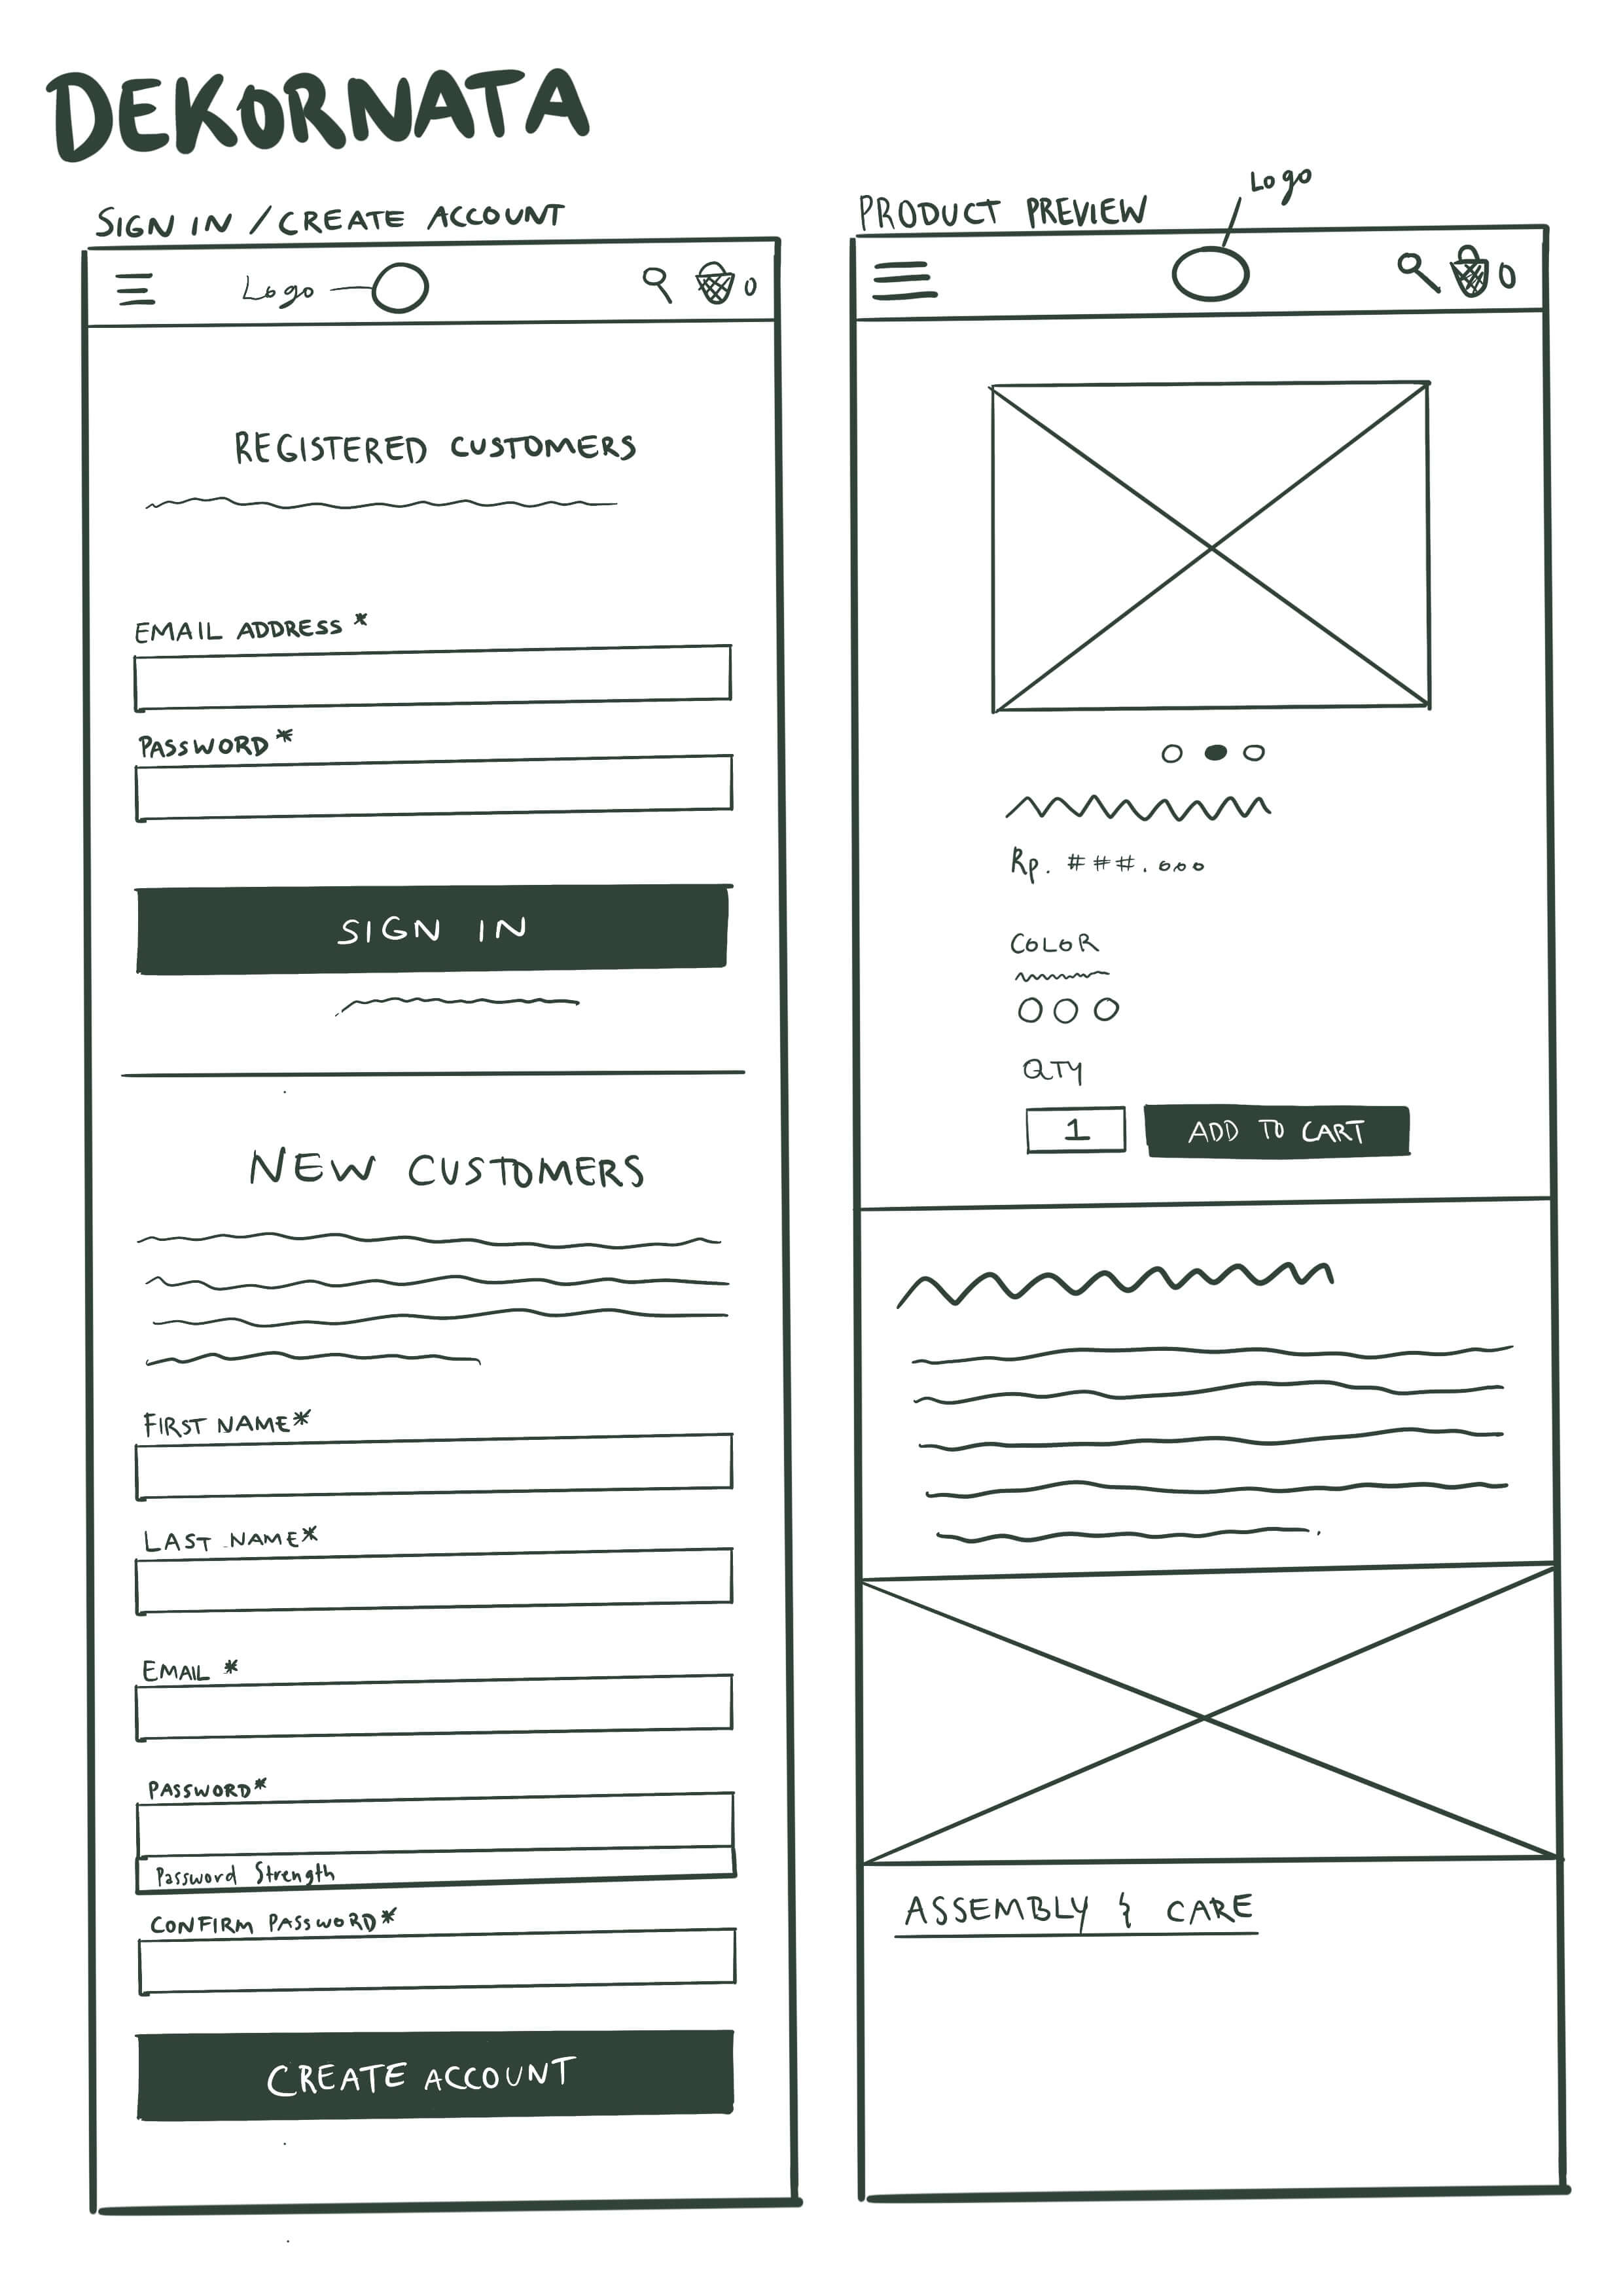 DEKORNATA
SIGN IN / CREATE ACCOUNT
Logo
0
REGISTERED CUSTOMERS
EMAIL ADDRESS *
PASSWORD *
SIGN IN
NEW CUSTOMERS
FIRST NAME*
LAST NAME*
EMAIL *
PASSWORD*
Password Strength
CONFIRM PASSWORD*
CREATE ACCOUNT
PRODUCT PREVIEW
Logo
0
Rp. ###.000
COLOR
QTY
1 ADD TO CART
ASSEMBLY & CARE